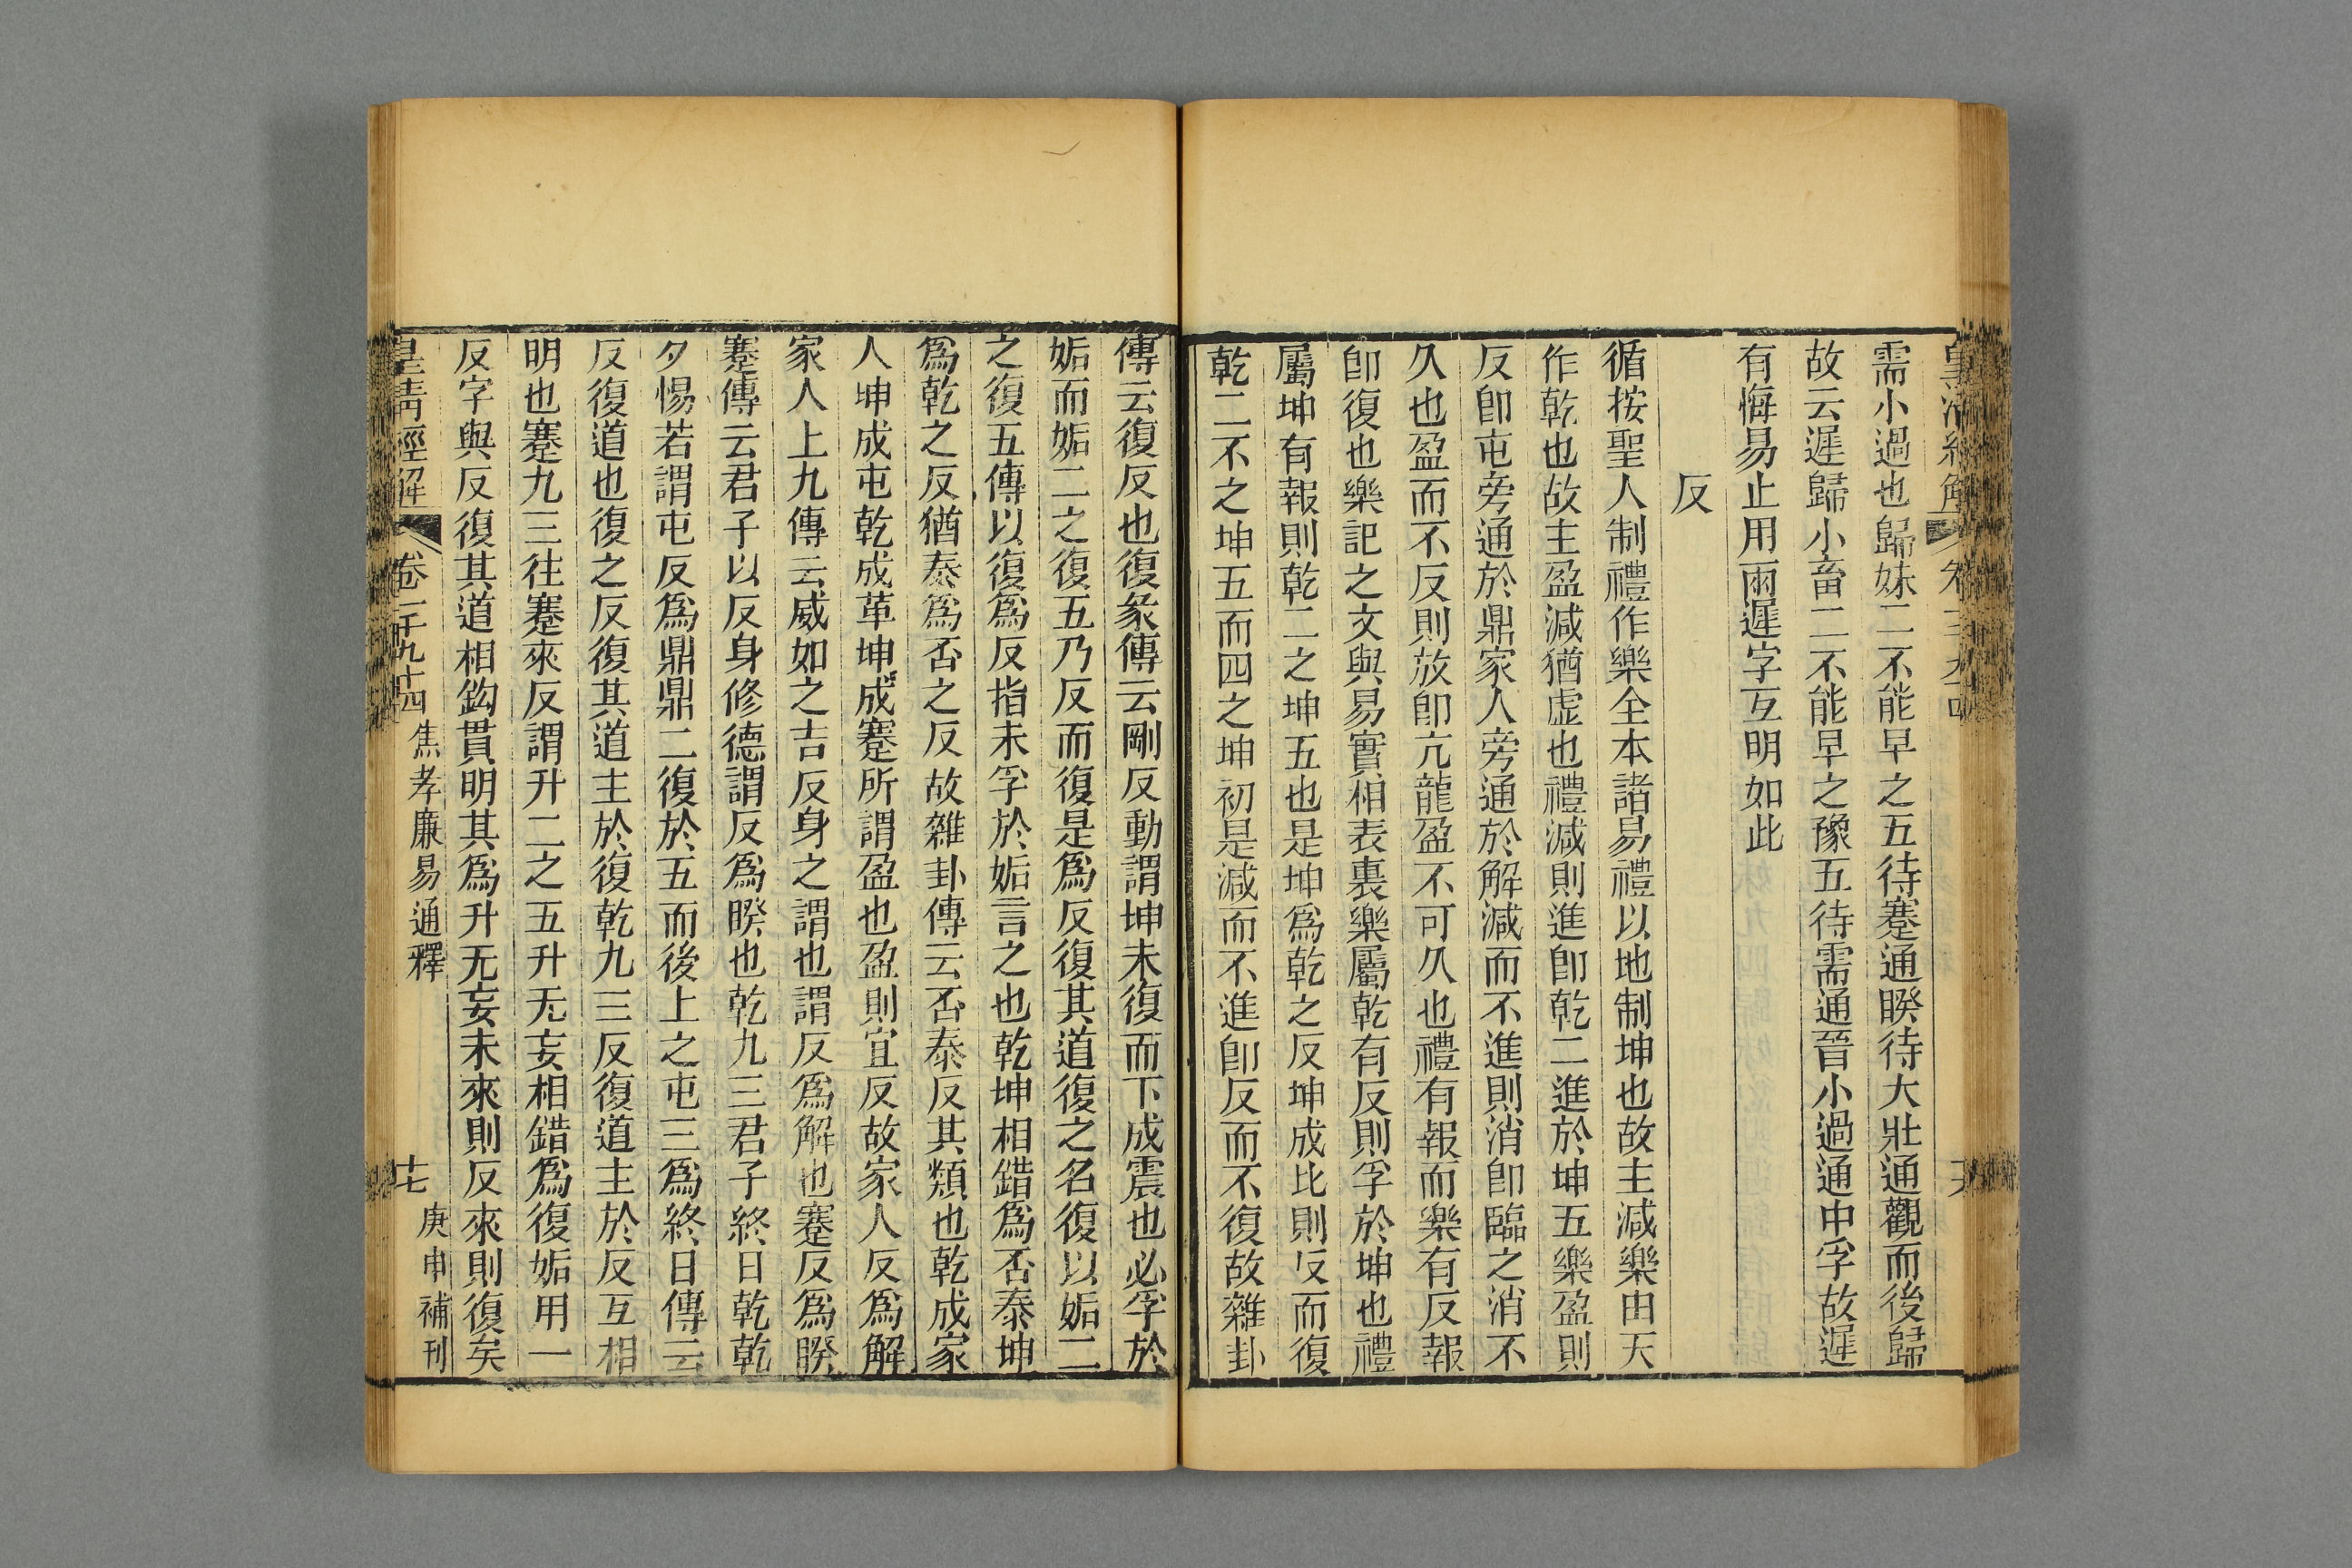 需小過也歸妹二不能早之五待蹇通睽待大壯通觀而後歸
故云遲歸小畜二不能早之豫五待需通晉小過通中孚故遲
有悔易止用兩遲字互明如此
反
循按聖人制禮作樂全本諸易禮以地制坤也故主減樂由天
作乾也故主盈減猶虛也禮減則進卽乾二進於坤五樂盈則
反卽屯旁通於鼎家人旁通於解減而不進則消卽臨之消不
久也盈而不反則放卽亢龍盈不可久也禮有報而樂有反報
卽復也樂記之文與易實相表裏樂屬乾有反則孚於坤也禮
屬坤有報則乾二之坤五也是坤爲乾之反坤成比則反而復
乾二不之坤五而四之坤初是減而不進卽反而不復故雜卦
傳云復反也復彖傳云剛反動謂坤未復而下成震也必孚於
姤而姤二之復五乃反而復是爲反復其道復之名復以姤二
之復五傳以復爲反指未孚於姤言之也乾坤相錯爲否泰坤
爲乾之反猶泰爲否之反故雜卦傳云否泰反其類也乾成家
人坤成屯乾成革坤成蹇所謂盈也盈則宜反故家人反爲解
家人上九傳云威如之吉反身之謂也謂反爲解也蹇反爲睽
蹇傳云君子以反身修德謂反爲睽也乾九三君子終日乾乾
夕惕若謂屯反爲鼎鼎二復於五而後上之屯三爲終日傳云
反復道也復之反復其道主於復乾九三反復道主於反互相
明也蹇九三往蹇來反謂升二之五升无妄相錯爲復姤用一
反字與反復其道相鈎貫明其爲升无妄未來則反來則復矣
皇清經解 卷一千九十四 焦孝廉易通釋 十七 庚申補刊